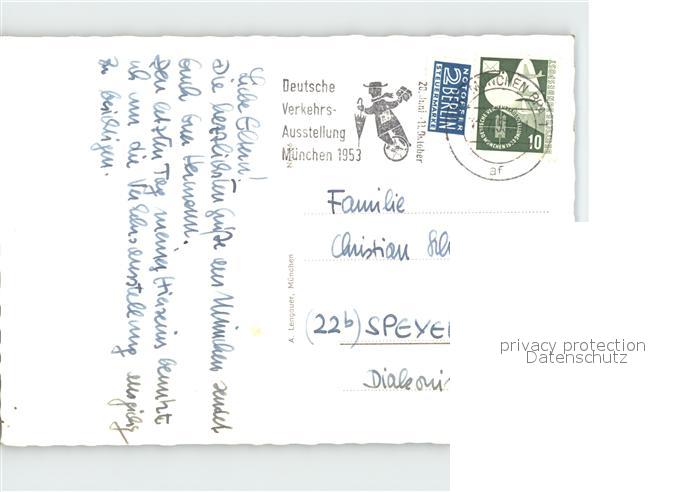 Liebe Eltern!
Die herzlichsten Grüße aus München sendet
Euch Euer Hermann.
Den letzten Tag meines Hierseins benutzt
ich um die Verkehrsausstellung
zu
Deutsche
Verkehrs-
Ausstellung
München 1953
20. Juni - 11. Oktober
NOTOPFER
2 BERLIN
STEUERMARKE
MÜNCHEN
af
10
Familie
Christian
(22b) SPEYE
Diakoni
A. Lengauer, München
privacy protection
Datenschutz